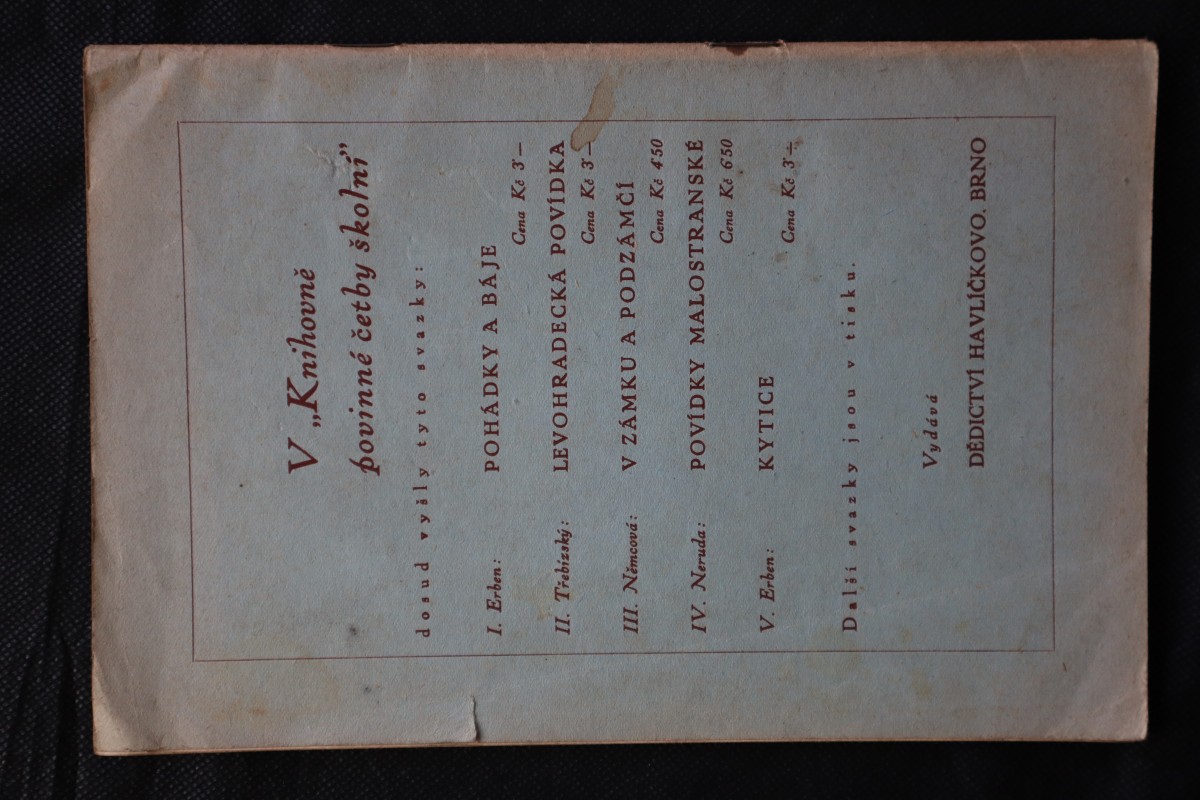 V „Knihovně
povinné četby školní”
dosud vyšly tyto svazky:
I. Erben: POHÁDKY A BÁJE
Cena Kč 3·—
II. Třebízský: LEVOHRADECKÁ POVÍDKA
Cena Kč 3·—
III. Němcová: V ZÁMKU A PODZÁMČÍ
Cena Kč 4·50
IV. Neruda: POVÍDKY MALOSTRANSKÉ
Cena Kč 6·50
V. Erben: KYTICE
Cena Kč 3·—
Další svazky jsou v tisku.
Vydává
DĚDICTVÍ HAVLÍČKOVO. BRNO